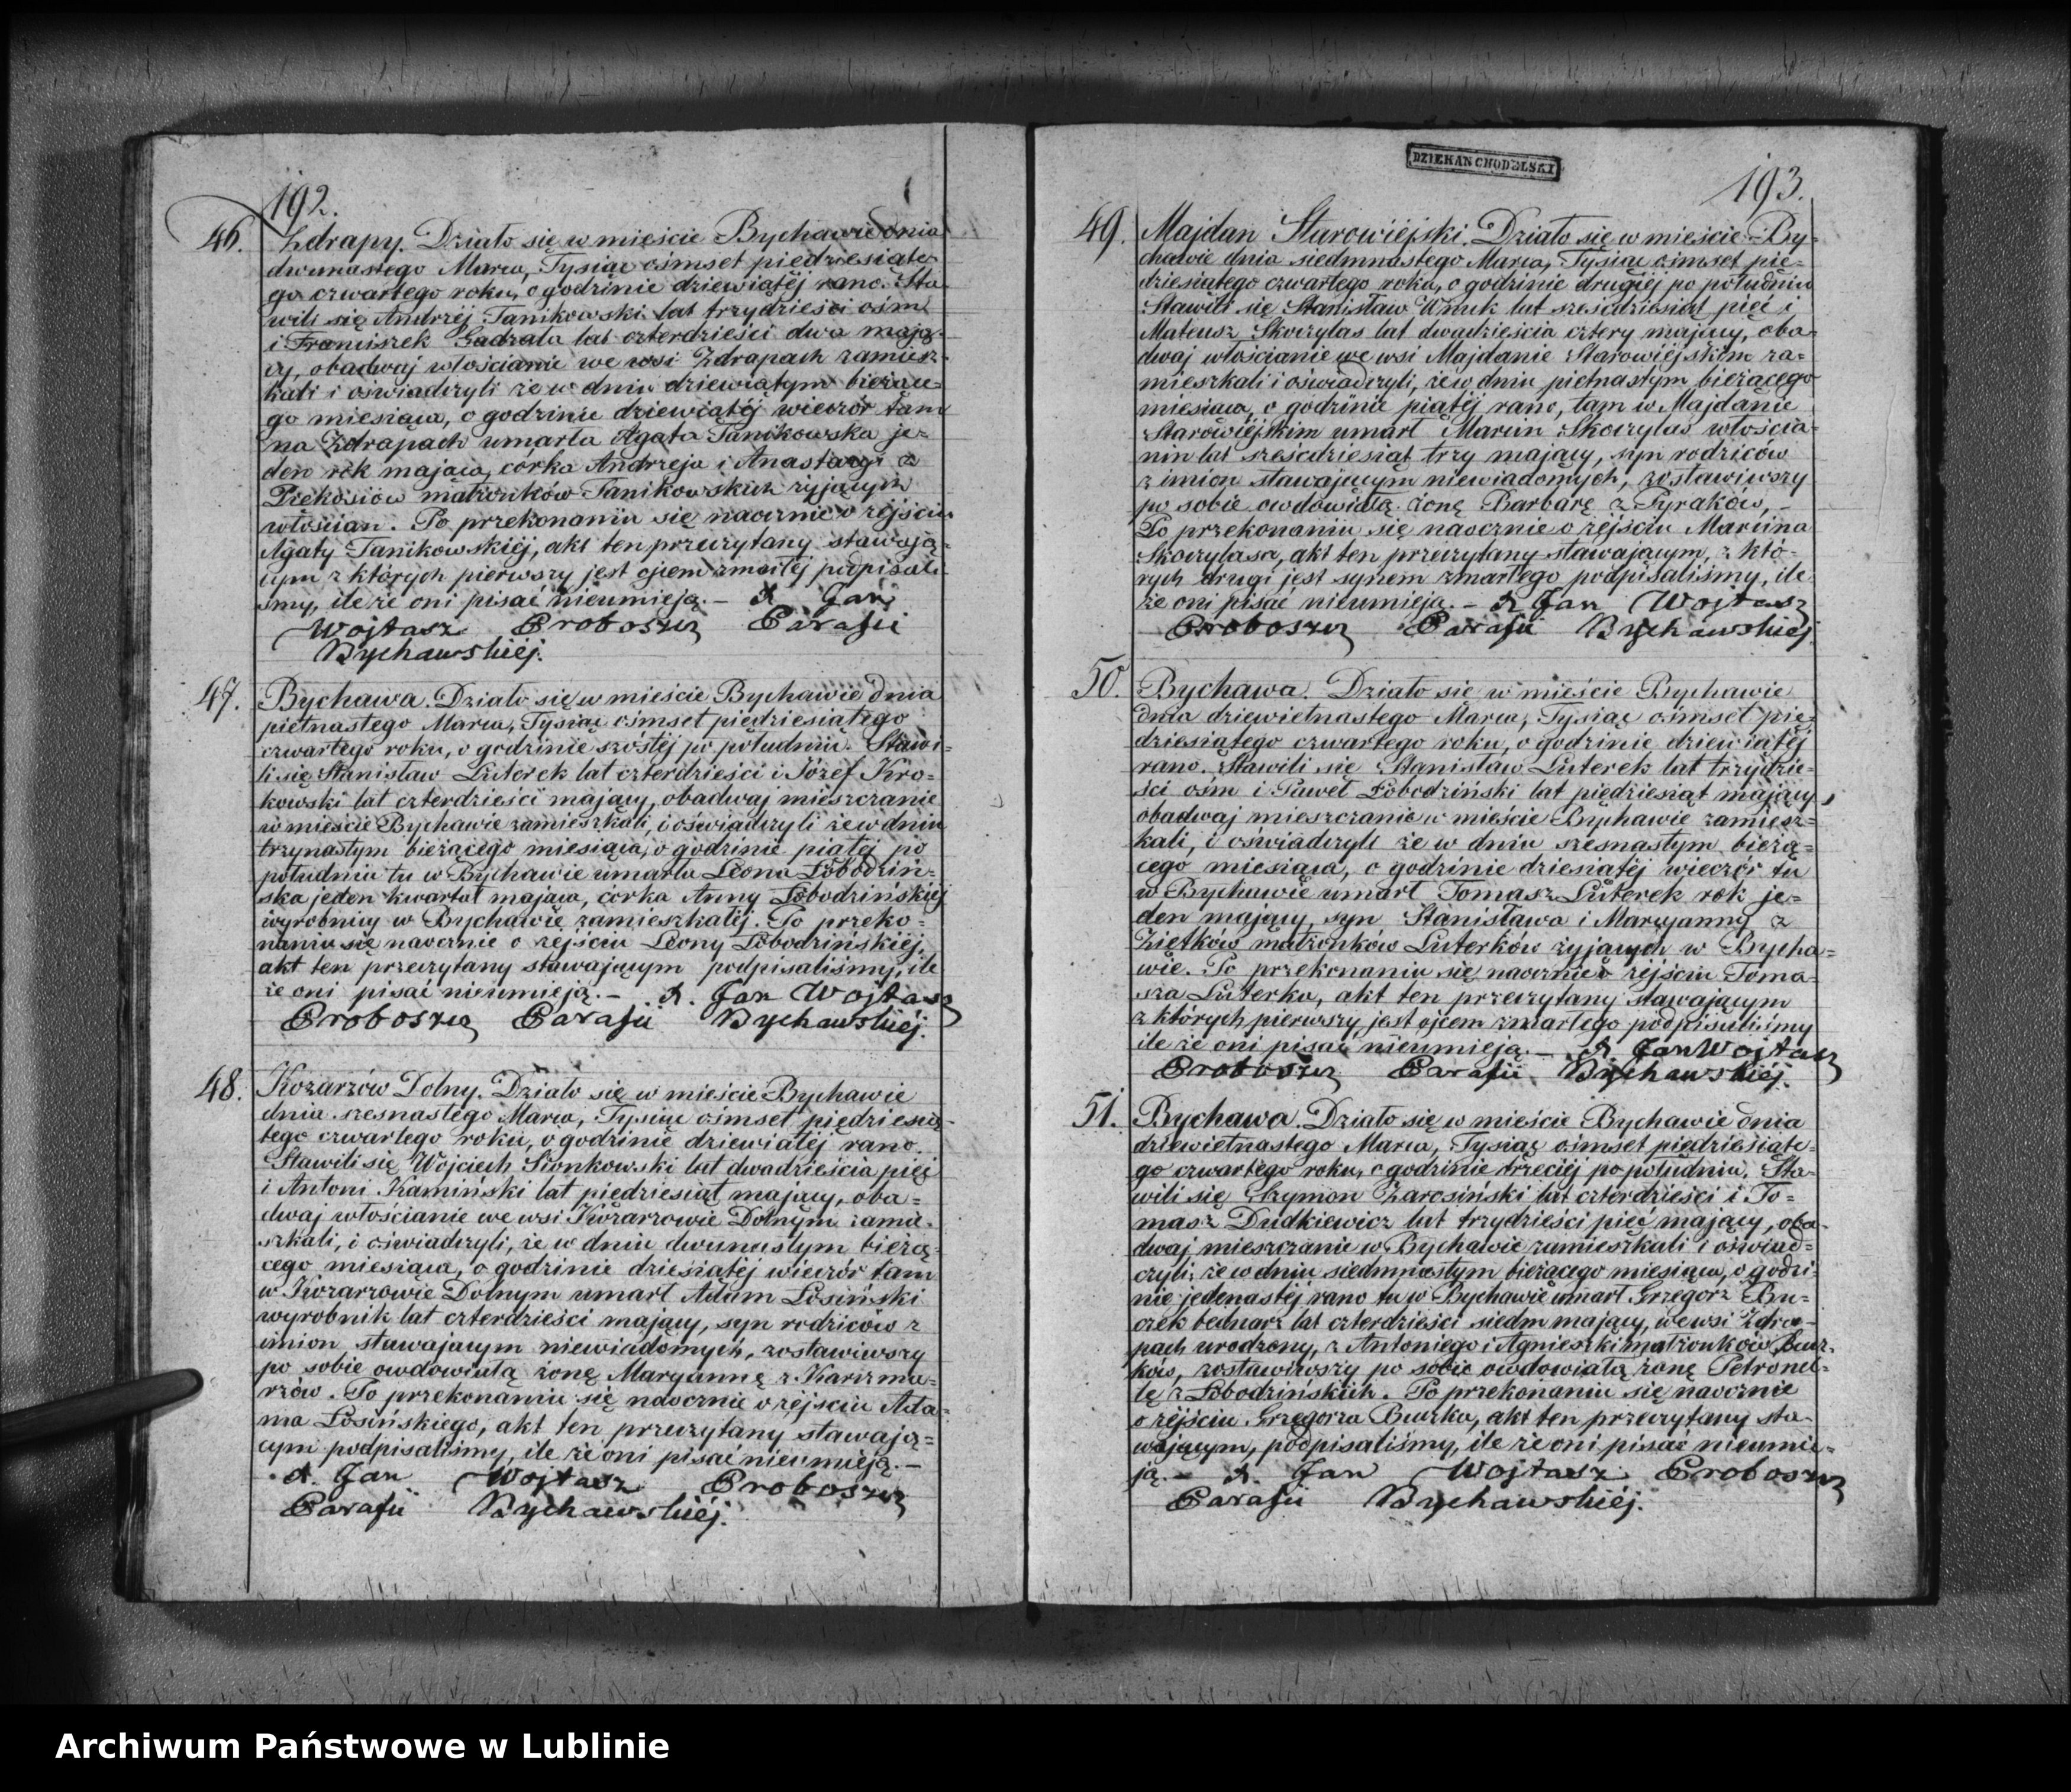 192.
46. Zdrapy. Działo się w mieście Bychawie dnia
dwunastego Marca, Tysiąc ośmset piędziesiąte-
go czwartego roku, o godzinie dziewiątéj rano. Sta-
wili się Andrzéj Tanikowski lat trzydzieści ośm
i Franciszek Gadzała lat czterdzieści dwa mają-
cy, obadwaj włościanie we wsi Zdrapach zamiesz-
kali i oświadczyli że w dniu dziewiątym bieżące-
go miesiąca, o godzinie dziewiątéj wieczór tam
na Zdrapach umarła Agata Tanikowska je-
den rok mająca, córka Andrzeja i Anastazyi z
małżonków Tanikowskich żyjących
włościan. Po przekonaniu się naocznie o zéjściu
Agaty Tanikowskiéj, akt ten przeczytany stawają-
cym z których pierwszy jest ojcem zmarłéj podpisali-
śmy, ile że oni pisać nieumieją.— X Jan
Wojtasz Proboszcz Parafii
Bychawskiéj.
47. Bychawa. Działo się w mieście Bychawie dnia
piętnastego Marca, Tysiąc ośmset piędziesiątego
czwartego roku, o godzinie szóstéj po południu. Stawi-
li się Stanisław Luterek lat czterdzieści i Józef Kro-
kowski lat czterdzieści mający, obadwaj mieszczanie
w mieście Bychawie zamieszkali, i oświadczyli że w dniu
trzynastym bieżącego miesiąca, o godzinie piątéj po
południu tu w Bychawie umarła Leona Łobodziń-
ska jeden kwartał mająca, córka Anny Łobodzińskiéj
wyrobnicy w Bychawie zamieszkałéj. Po przeko-
naniu się naocznie o zéjściu Leony Łobodzińskiéj,
akt ten przeczytany stawającym podpisaliśmy, ile
że oni pisać nieumieją.— X. Jan Wojtasz
Proboszcz Parafii Bychawskiéj.
48. Kozarzów Dolny. Działo się w mieście Bychawie
dnia szesnastego Marca, Tysiąc ośmset piędziesią-
tego czwartego roku, o godzinie dziewiątéj rano.
Stawili się Wojciech Sionkowski lat dwadzieścia pięć
i Antoni Kamiński lat piędziesiąt mający, oba-
dwaj włościanie we wsi Kozarzowie Dolnym zamie-
szkali, i oświadczyli, że w dniu dwunastym bieżą-
cego miesiąca, o godzinie dziesiątéj wieczór tam
w Kozarzowie Dolnym umarł Adam Łosiński
wyrobnik lat czterdzieści mający, syn rodziców z
imion stawającym niewiadomych, zostawiwszy
po sobie owdowiałą żonę Maryannę z Karczma-
rzów. Po przekonaniu się naocznie o zéjściu Ada-
ma Łosińskiego, akt ten przeczytany stawają-
cym podpisaliśmy, ile że oni pisać nieumieją.—
X. Jan Wojtasz Proboszcz
Parafii Bychawskiéj.
DZIEKAN CHODELSKI
193.
49. Majdan Starowiéjski. Działo się w mieście By-
chawie dnia siedmnastego Marca, Tysiąc ośmset pię-
dziesiątego czwartego roku, o godzinie drugiéj po południu
Stawili się Stanisław Wnuk lat sześćdziesiąt pięć i
Mateusz Skoczylas lat dwadzieścia cztery mający, oba-
dwaj włościanie we wsi Majdanie Starowiéjskim za-
mieszkali i oświadczyli, że w dniu piętnastym bieżącego
miesiąca, o godzinie piątéj rano, tam w Majdanie
Starowiéjskim umarł Marcin Skoczylas włościa-
nin lat sześćdziesiąt trzy mający, syn rodziców
z imion stawającym niewiadomych, zostawiwszy
po sobie owdowiałą żonę Barbarę z Pyraków.—
Po przekonaniu się naocznie o zéjściu Marcina
Skoczylasa, akt ten przeczytany stawającym, z któ-
rych drugi jest synem zmarłego podpisaliśmy, ile
że oni pisać nieumieją.— X Jan Wojtasz
Proboszcz Parafii Bychawskiéj
50. Bychawa. Działo się w mieście Bychawie
dnia dziewiętnastego Marca, Tysiąc ośmset pię-
dziesiątego czwartego roku, o godzinie dziewiątéj
rano. Stawili się Stanisław Luterek lat trzydzie-
ści ośm i Paweł Łobodziński lat piędziesiąt mający,
obadwaj mieszczanie w mieście Bychawie zamiesz-
kali, i oświadczyli że w dniu szesnastym bieżą-
cego miesiąca, o godzinie dziesiątéj wieczór tu
w Bychawie umarł Tomasz Luterek rok je-
den mający, syn Stanisława i Maryanny z
Ziętków małżonków Luterków żyjących w Bycha-
wie. Po przekonaniu się naocznie o zéjściu Toma-
sza Luterka, akt ten przeczytany stawającym
z których pierwszy jest ojcem zmarłego podpisaliśmy
ile że oni pisać nieumieją.— X. Jan Wojtasz
Proboszcz Parafii Bychawskiéj.
51. Bychawa. Działo się w mieście Bychawie dnia
dziewiętnastego Marca, Tysiąc ośmset piędziesiąte-
go czwartego roku, o godzinie trzeciéj po południu. Sta-
wili się Szymon Zarosiński lat czterdzieści i To-
masz Dudkiewicz lat trzydzieści pięć mający, oba-
dwaj mieszczanie w Bychawie zamieszkali i oświad-
czyli, że w dniu siedmnastym bieżącego miesiąca, o godzi-
nie jedenastéj rano tu w Bychawie umarł Grzegorz Bu-
czek bednarz lat czterdzieści siedm mający, we wsi Zdra-
pach urodzony, z Antoniego i Agnieszki małżonków Bucz-
ków, zostawiwszy po sobie owdowiałą żonę Petronel-
lę z Łobodzińskich. Po przekonaniu się naocznie
o zéjściu Grzegorza Buczka, akt ten przeczytany sta-
wającym, podpisaliśmy, ile że oni pisać nieumie-
ją.— X. Jan Wojtasz Proboszcz
Parafii Bychawskiéj.
Archiwum Państwowe w Lublinie